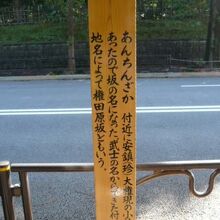 あんちんざか 付近に安鎮(珍)大権現の小
あったので坂の名になった。武士の名からできた付
地名によって権田原坂ともいう。